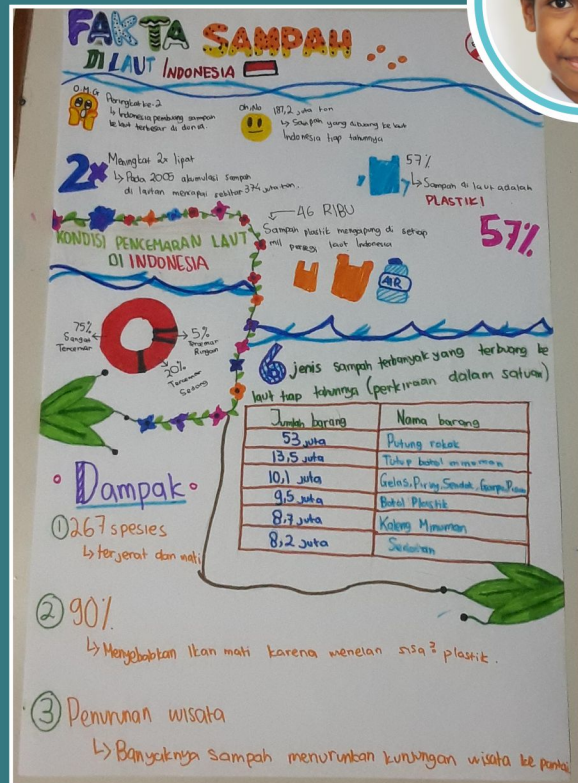 FAKTA SAMPAH
DI LAUT INDONESIA
O.M.G
Peringkat ke-2
↳ Indonesia pembuang sampah
ke laut terbesar di dunia.
Oh, No
187,2 juta ton
↳ Sampah yang dibuang ke laut
Indonesia tiap tahunnya
2x
Meningkat 2x lipat
↳ Pada 2005 akumulasi sampah
di lautan mencapai sekitar 374 juta ton.
57%
↳ Sampah di laut adalah
PLASTIK!
57%
46 RIBU
Sampah plastik mengapung di setiap
mil persegi laut Indonesia
AIR
KONDISI PENCEMARAN LAUT
DI INDONESIA
75%
Sangat
Tercemar
5%
Tercemar
Ringan
20%
Tercemar
Sedang
6 jenis sampah terbanyak yang terbuang ke
laut tiap tahunnya (perkiraan dalam satuan)
Jumlah barang Nama barang
53 juta Putung rokok
13,5 juta Tutup botol minuman
10,1 juta Gelas, Piring, Sendok, Garpu, Pisau
9,5 juta Botol Plastik
8,7 juta Kaleng Minuman
8,2 juta Sedotan
Dampak
① 267 spesies
↳ terjerat dan mati
② 90%
↳ Menyebabkan Ikan mati karena menelan sisa² plastik.
③ Penurunan wisata
↳ Banyaknya sampah menurunkan kunjungan wisata ke pantai